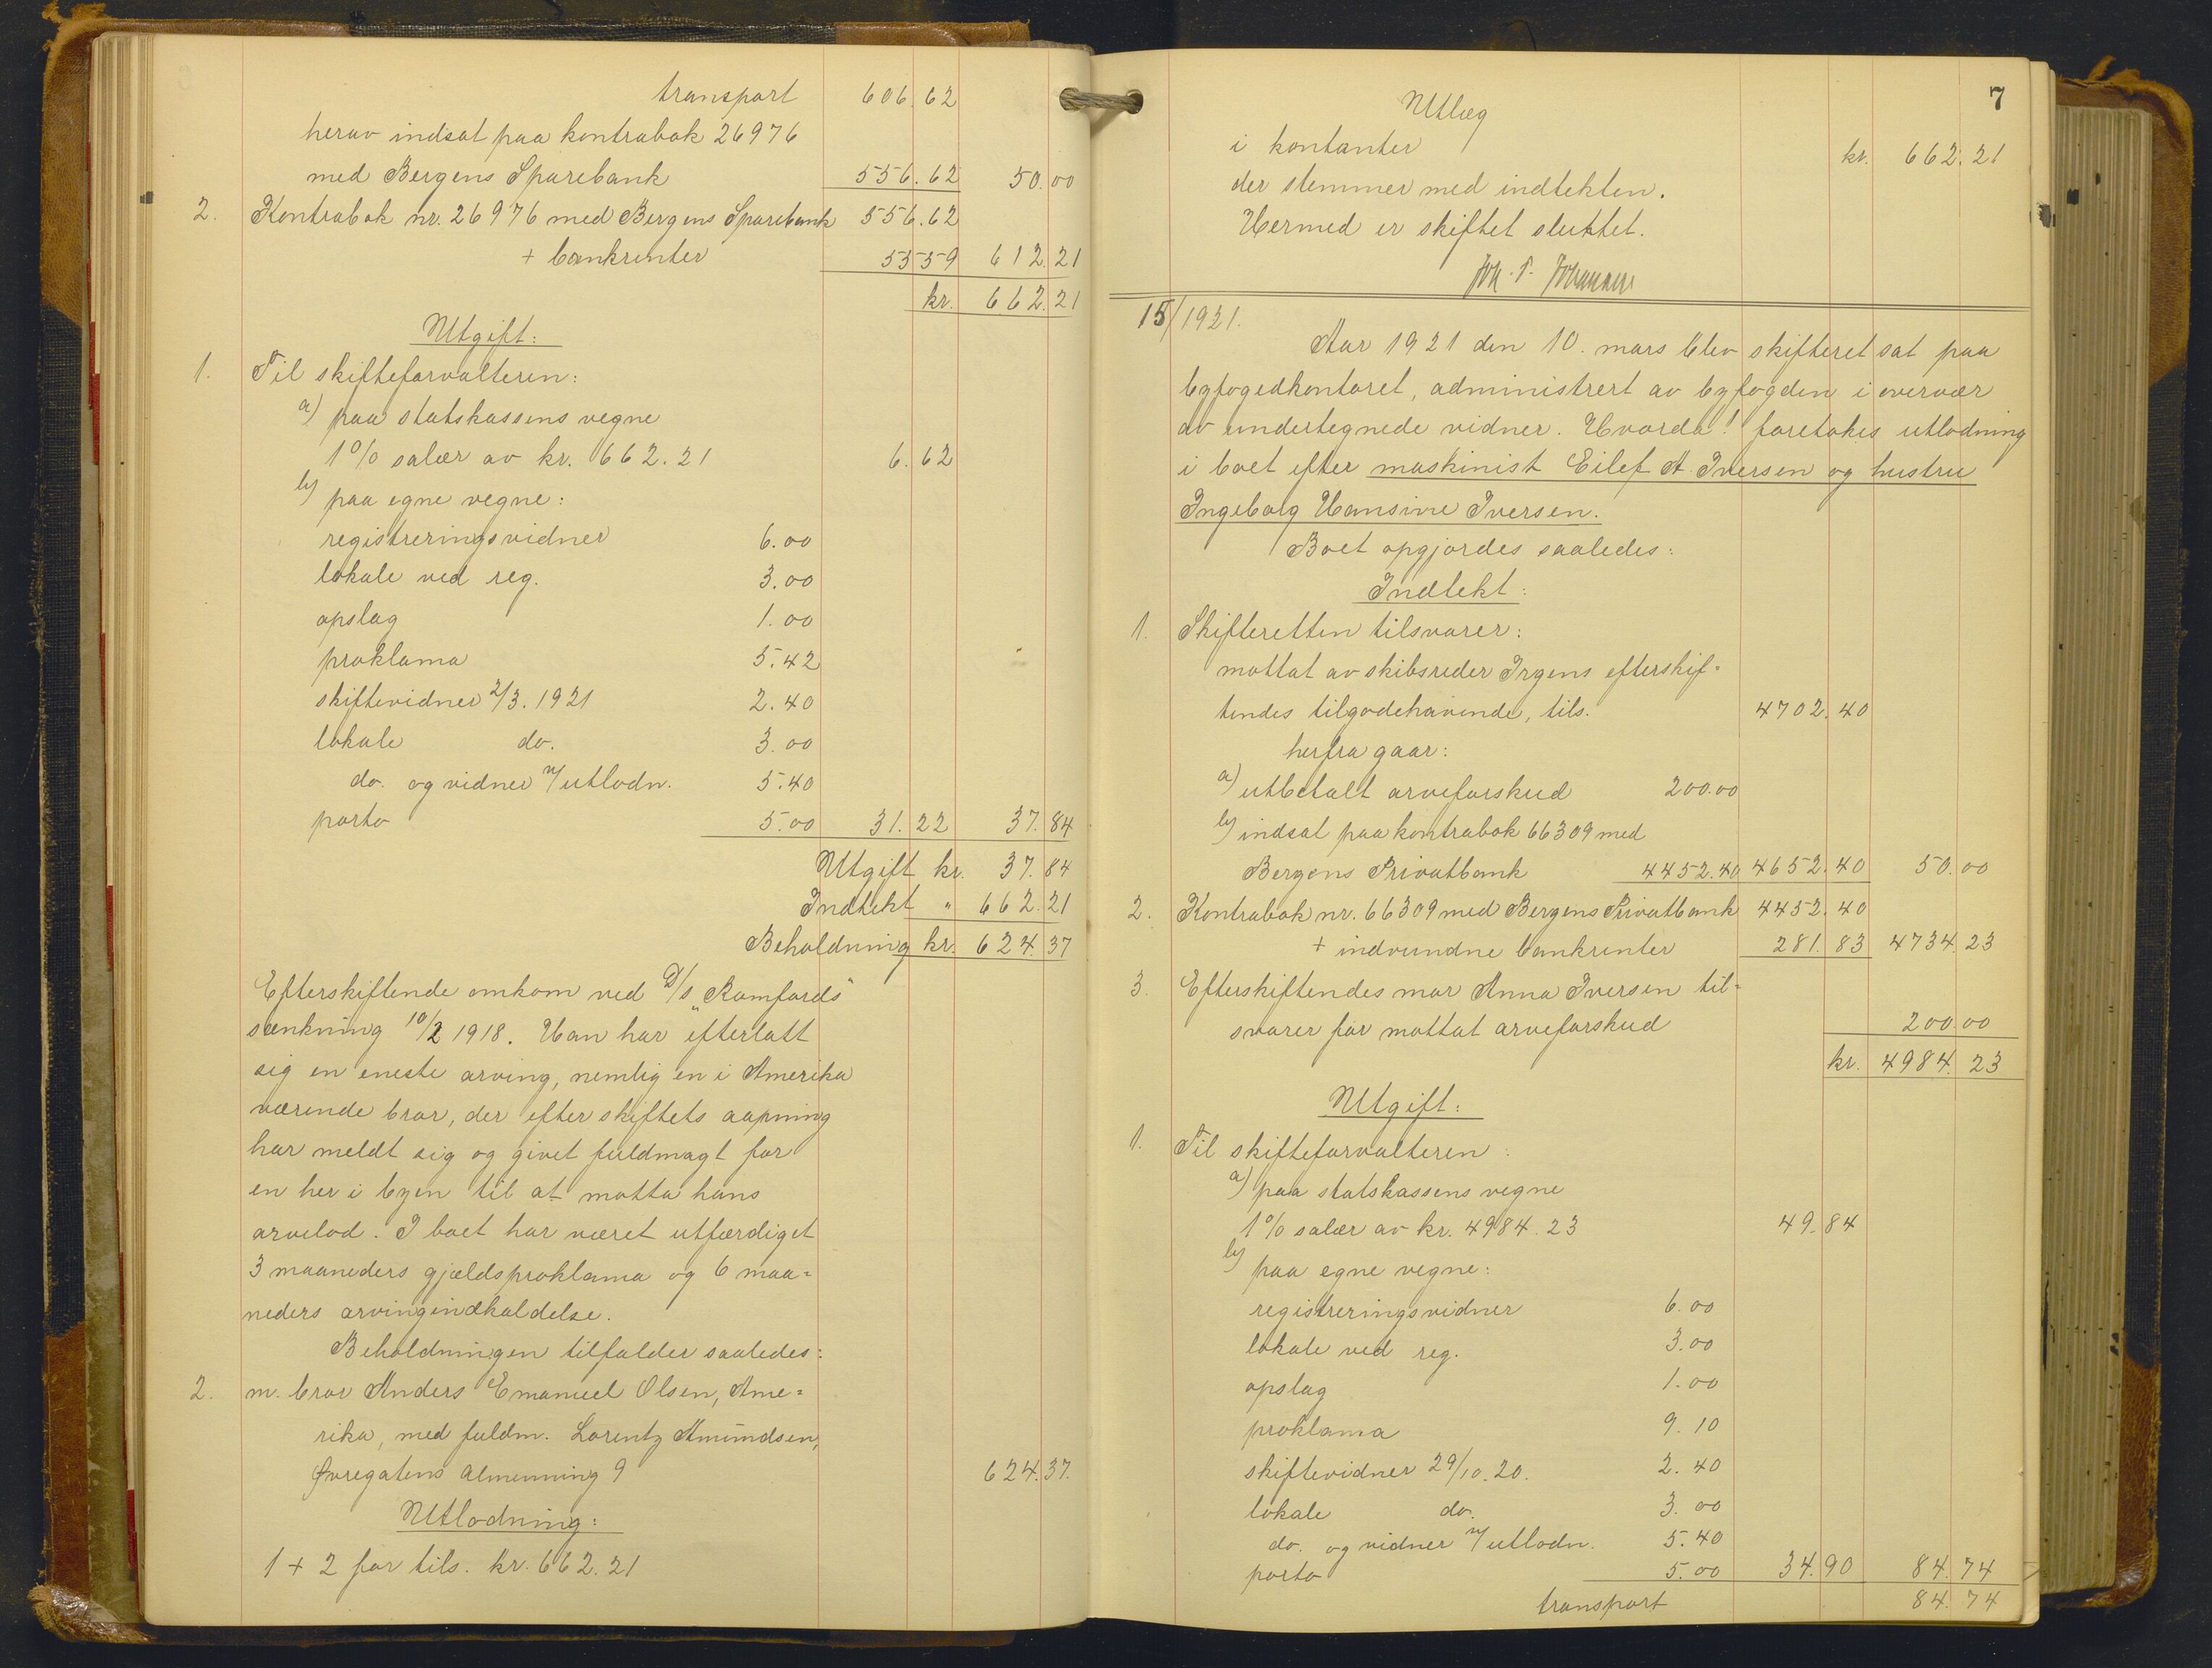 transport 606.62
herav indsat paa kontrabok 26976
med Bergens Sparebank 556.62 50.00
2. Kontrabok nr. 26976 med Bergens Sparebank 556.62
+ bankrenter 55 59 612.21
kr. 662.21
Utgift:
1. Til skifteforvalteren:
a) paa statskassens vegne
1% salær av kr. 662.21 6.62
b) paa egne vegne:
registreringsvidner 6.00
lokale ved reg. 3.00
opslag 1.00
proklama 5.42
skiftevidner 2/3. 1921 2.40
lokale do. 3.00
do. og vidner v/utlodn. 5.40
porto 5.00 31.22 37.84
Utgift kr. 37.84
Indtekt " 662.21
Beholdning kr. 624.37
Efterskiftende omkom ved D/s "Romfords"
sænkning 10/2 1918. Han har efterlatt
sig en eneste arving, nemlig en i Amerika
værende bror, der efter skiftets aapning
har meldt sig og givet fuldmagt for
en her i byen til at motta hans
arvelod. I boet har været utfærdiget
3 maaneders gjældsproklama og 6 maa=
neders arvingindkaldelse.
Beholdningen tilfalder saaledes:
2. m. bror Anders Emanuel Olsen, Ame=
rika, med fuldm. Lorentz Amundsen,
Øvregatens Almenning 9 624.37.
Utlodning:
1 + 2 for tils. kr. 662.21
7
Utlæg
i kontanter kr. 662.21
der stemmer med indtekten.
Hermed er skiftet sluttet.
15/1921.
Aar 1921 den 10. mars blev skifteret sat paa
byfogedkontoret, administrert av byfogden i overvær
av undertegnede vidner. Hvorda! foretokes utlodning
i boet efter maskinist Eilef A. Iversen og hustru
Ingeborg Hansine Iversen.
Boet opgjordes saaledes:
Indtekt:
1. Skifteretten tilsvarer:
mottat av skibsreder Irgens efterskif=
tendes tilgodehavende, tils. 4702.40
herfra gaar:
a) utbetalt arveforskud 200.00
b) indsat paa kontrabok 66309 med
Bergens Privatbank 4452.40 4652.40 50.00
2. Kontrabok nr. 66309 med Bergens Privatbank 4452.40
+ indvundne bankrenter 281.83 4734.23
3. Efterskiftendes mor Anna Iversen til=
svarer for mottat arveforskud 200.00
kr. 4984.23
Utgift:
1. Til skifteforvalteren:
a) paa statskassens vegne
1% salær av kr. 4984.23 49.84
b) paa egne vegne:
registreringsvidner 6.00
lokale ved reg. 3.00
opslag 1.00
proklama 9.10
skiftevidner 29/10.20. 2.40
lokale do. 3.00
do. og vidner v/utlodn. 5.40
porto 5.00 34.90 84.74
transport 84.74